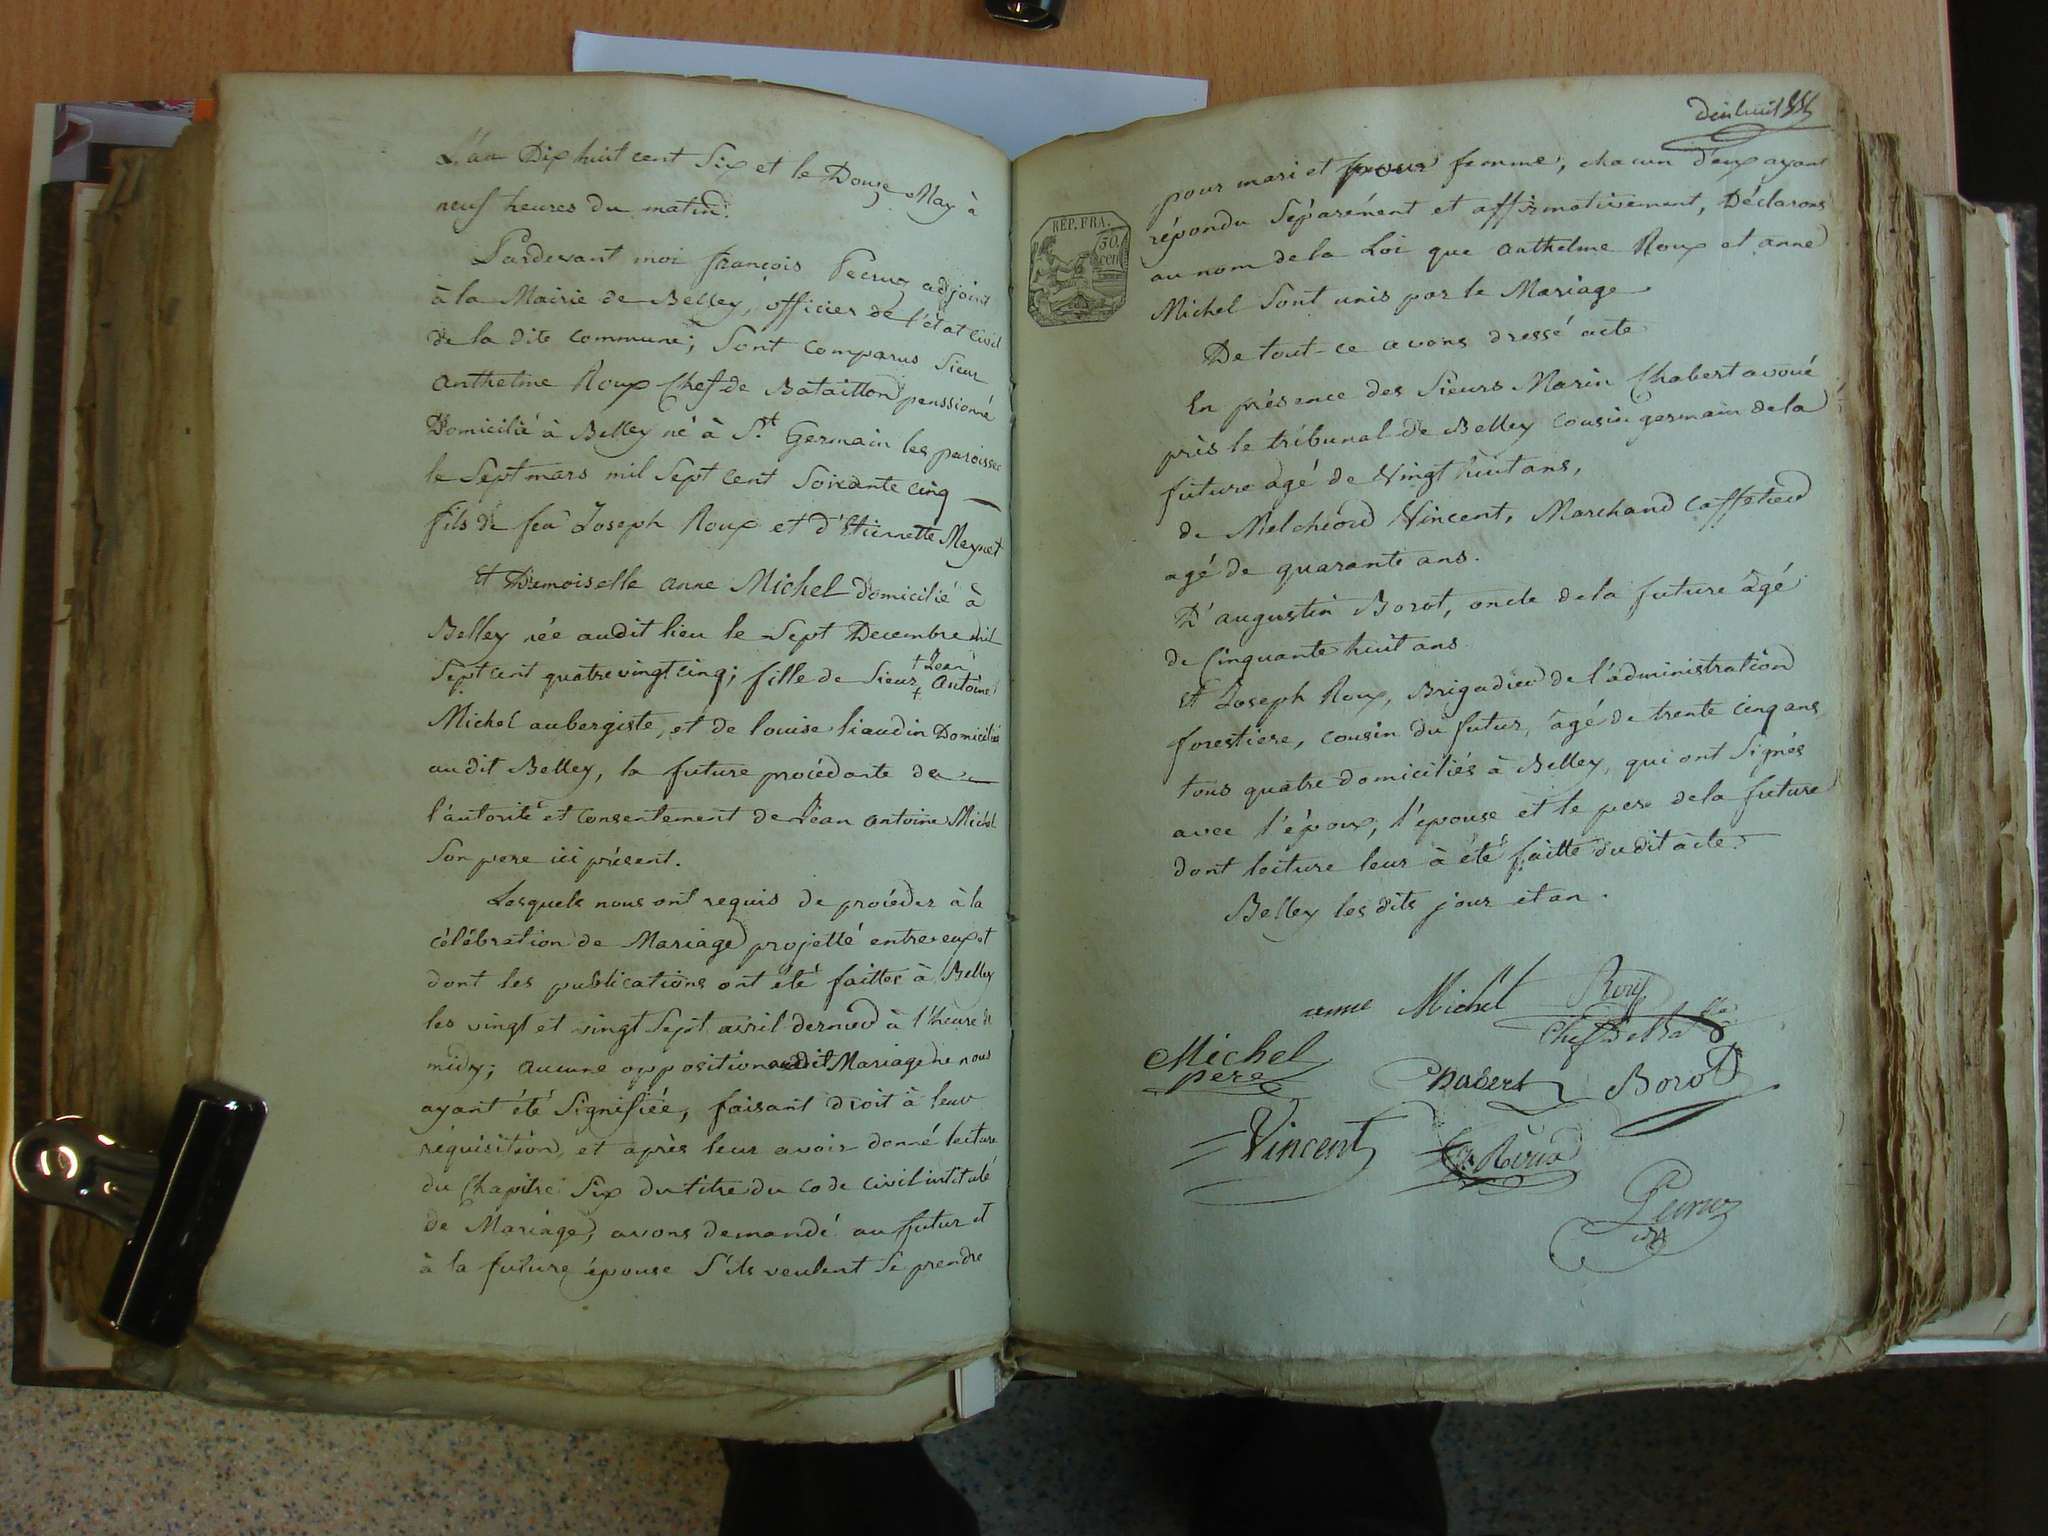 L'an Dix huit cent Six et le Douze May à
neuf heures du matin.
Pardevant moi françois Peeruz adjoint
à la Mairie de Belley, officier de l'état Civil
de la dite commune; Sont comparus Sieur
anthelme Roux Chef de Bataillon penssionné
Domicilié à Belley né à St. Germain les paroisses
le Sept mars mil Sept cent Soixante cinq
fils de feu Joseph Roux et d'Etiennette Meynet
Et Demoiselle anne Michel domicilié à
Belley née audit lieu le Sept Decembre mil
Sept cent quatre vingt cinq; fille de Sieur Jean Antoine
Michel aubergiste, et de louise liaudin Domiciliés
audit Belley, la future procédante de
l'autorité et Consentement de Jean antoine Michel
Son pere ici présent.
Lesquels nous ont requis de procéder à la
célébration de Mariage projetté entre eux et
dont les publications ont été faittes à Belley
les vingt et vingt Sept avril dernier à l'heure de
midy; aucune opposition audit Mariage ne nous
ayant été Signifiée, faisant droit à leur
réquisition, et après leur avoir donné lecture
du Chapitre Six du titre du code civil intitulé
de Mariage, avons demandé au futur et
à la future épouse S'ils veulent Se prendre
REP. FRA.
50.
cen
pour mari et pour femme; chacun d'eux ayant
répondu Séparément et affirmativement, Déclarons
au nom de la Loi que anthelme Roux et anne
Michel Sont unis par le Mariage
De tout ce avons dressé acte
En présence des Sieurs Marin Chabert avoué
près le tribunal de Belley cousin germain de la
future agé de Vingt huit ans,
de Melchéord Vincent, Marchand caffetier
agé de quarante ans.
D'augustin Borot, oncle de la future âgé
de Cinquante huit ans
Et Joseph Roux, Brigadier de l'administration
forestiere, cousin du futur, âgé de trente cinq ans
tous quatre domiciliés à Belley, qui ont Signés
avec l'époux, l'épouse et le pere de la future
dont lecture leur à été faitte dudit acte
Belley les dits jour et an.
anne Michel Roux
Chef de Ba
Michel
pere
Chabert Borot
Vincent Roux